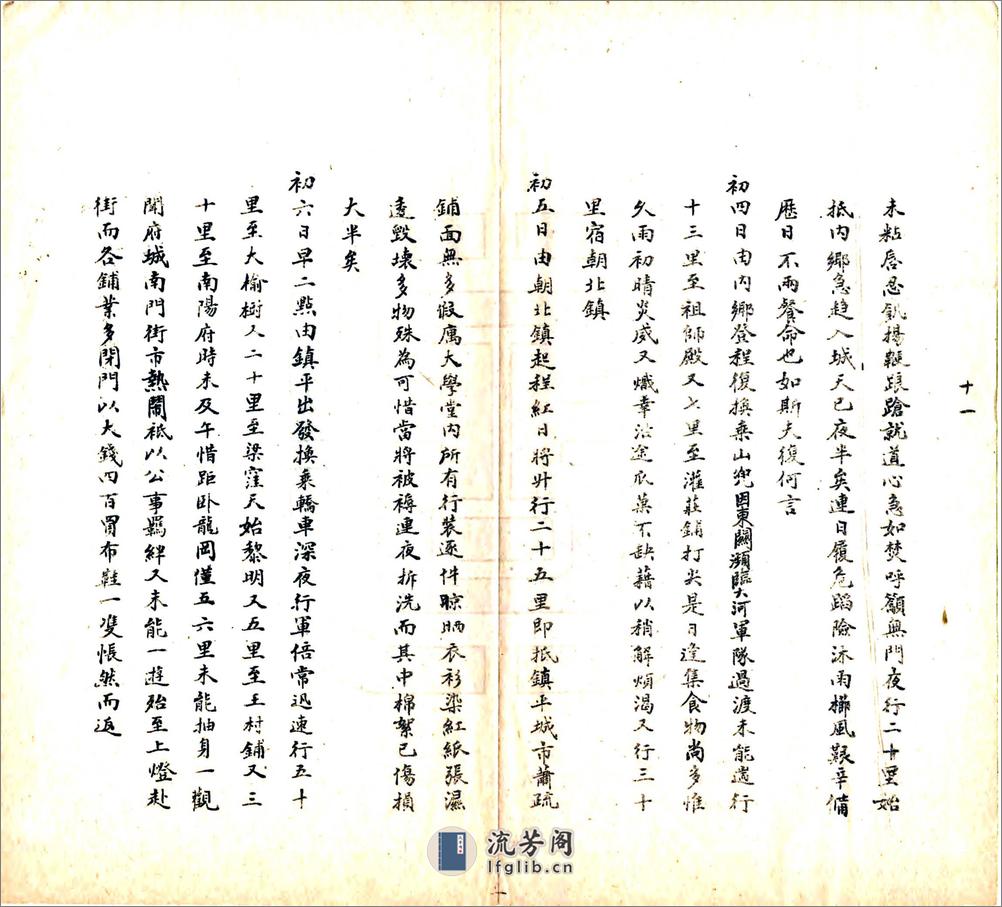 十一
未粘唇忍飢揚鞭踉蹌就道心急如焚呼籲無門夜行二十里始
抵內鄉急趋入城天已夜半矣連日履危蹈險沐雨櫛風艱辛備
歷日不兩餐命也如斯夫復何言
初四日由內鄉登程復換乘山兜因東關瀕臨大河軍隊過渡未能遄行
十三里至祖師殿又七里至灌莊鋪打尖是日逢集食物尚多惟
久雨初晴炎威又熾幸沿途瓜菓不缺藉以稍解煩渴又行三十
里宿朝北鎮
初五日由朝北鎮起程紅日將升行二十五里即抵鎮平城市蕭疏
鋪面無多假寓大學堂內所有行裝逐件晾晒衣衫染紅紙張濕
透毀壞多物殊為可惜當將被褥連夜拆洗而其中棉絮已傷損
大半矣
初六日早二點由鎮平出發換乘轎車深夜行軍倍常迅速行五十
里至大榆樹人二十里至梁窪天始黎明又五里至王村鋪又三
十里至南陽府時未及午惜距卧龍岡僅五六里未能抽身一觀
聞府城南門街市熱鬧袛以公事羈絆又未能一遊殆至上燈赴
街而各鋪業多閉門以大錢四百買布鞋一雙悵然而返
流芳阁
lfglib.cn